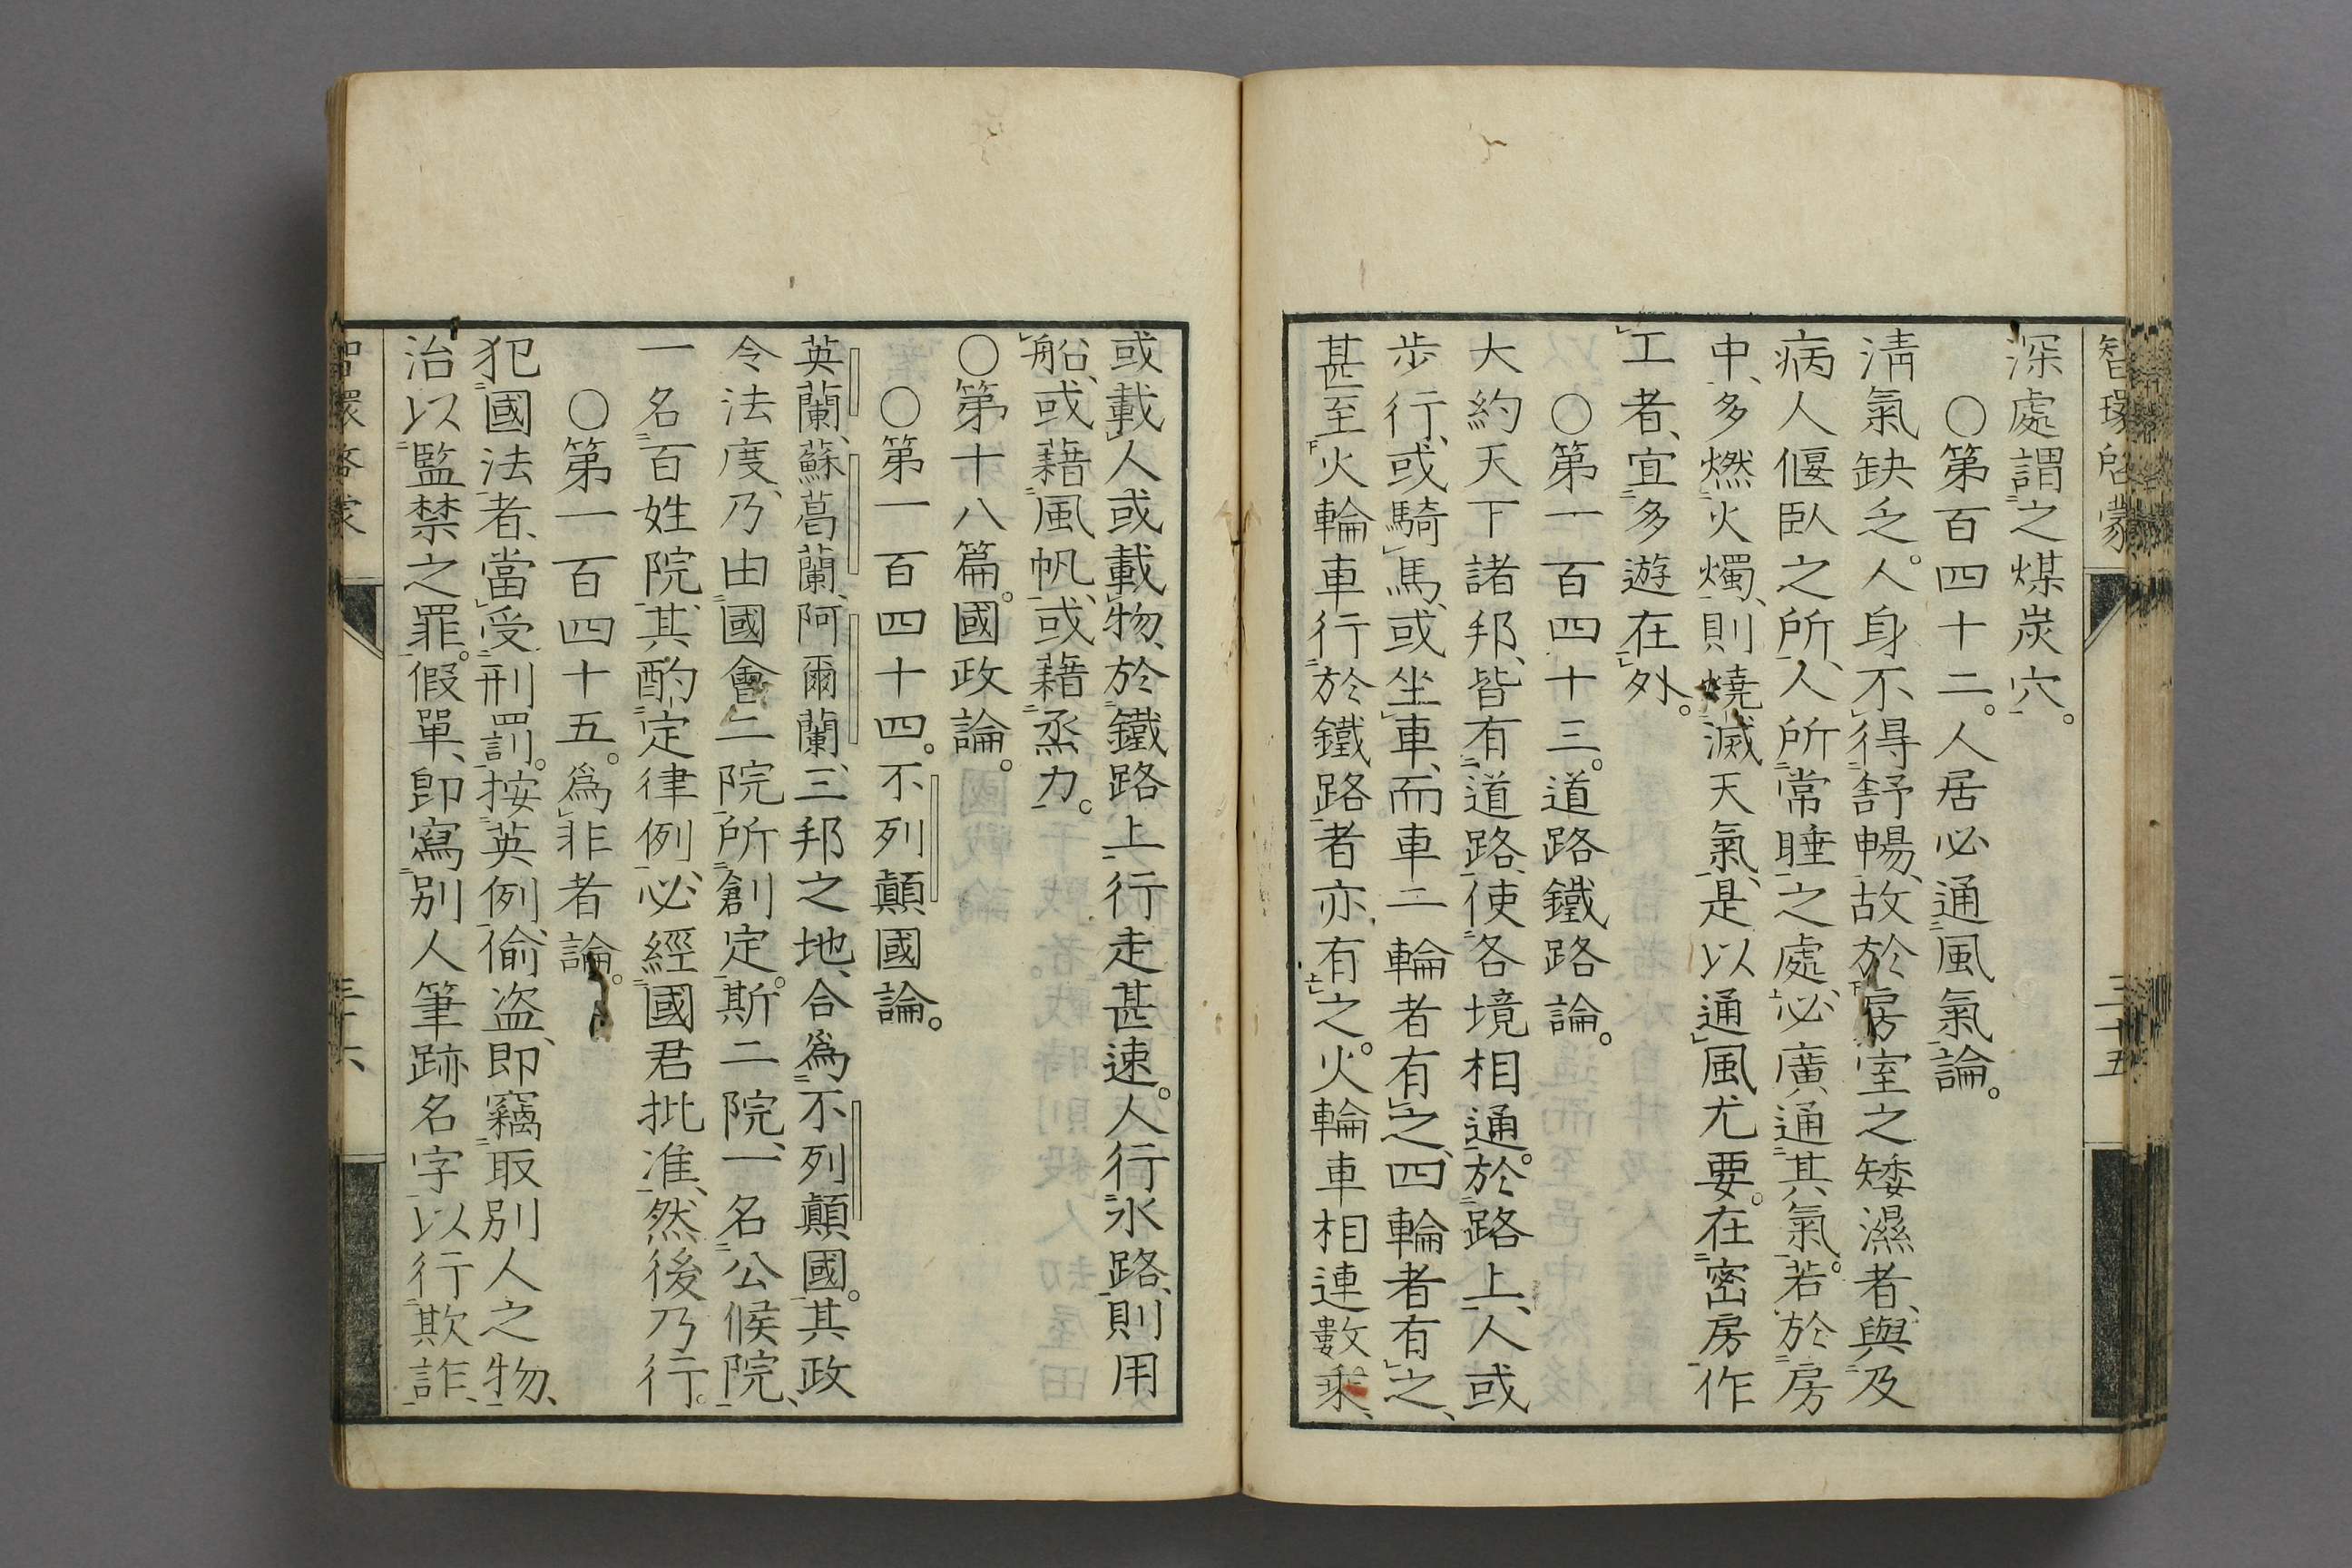 智環啓蒙
三十五
深處謂之煤炭穴。
○第百四十二。人居必通風氣論。
淸氣缺乏。人身不得舒暢、故於房室之矮濕者、與及
病人偃臥之所、人所常睡之處、必廣通其氣。若於房
中、多燃火燭、則燒滅天氣、是以通風尤要。在密房作
工者、宜多遊在外。
○第一百四十三。道路鐵路論。
大約天下諸邦、皆有道路、使各境相通。於路上、人或
步行、或騎馬、或坐車、而車二輪者有之、四輪者有之、
甚至火輪車行於鐵路者亦有之。火輪車相連數乘、
或載人或載物、於鐵路上行走甚速。人行水路、則用
船、或藉風帆、或藉烝力。
○第十八篇。國政論。
○第一百四十四。不列顛國論。
英蘭、蘇葛蘭、阿爾蘭、三邦之地、合爲不列顛國。其政
令法度、乃由國會二院所創定。斯二院、一名公候院、
一名百姓院、其酌定律例、必經國君批准、然後乃行。
○第一百四十五。爲非者論。
犯國法者、當受刑罰。按英例、偷盗、即竊取別人之物、
治以監禁之罪。假單、卽寫別人筆跡名字、以行欺詐、
智環啓蒙
三十六